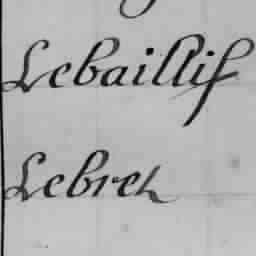 Lebaillif
Lebret